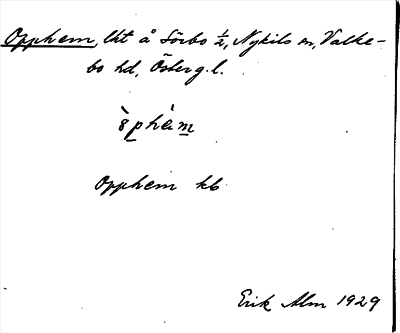 Opphem, lht å Sörbo ½, Nykils sn, Valke-
bo hd, Österg.l.
Opphem kb
Erik Alm 1929